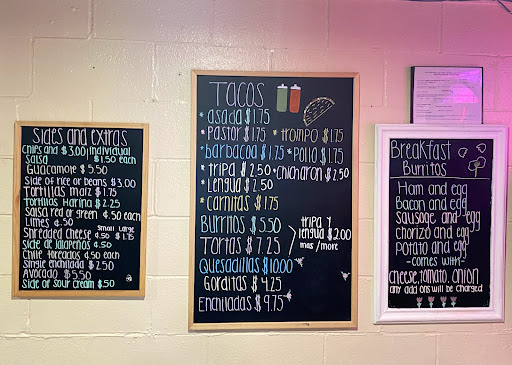 Sides and extras
Chips and $3.00 individual
Salsa $1.50 each
Guacamole $5.50
Side of rice or beans $3.00
Tortillas maiz $1.75
Tortillas Harina $2.25
Salsa red or green ¢.50 each
Limes ¢.50
Small Large
Shredded cheese ¢.50 $1.75
Side de Jalapeños ¢.50
Chile toreados ¢.50 each
Single enchilada $2.50
Avocado $5.50
Side of sour cream $.50
TACOS
* asada $1.75
* Pastor $1.75 * trompo $1.75
* barbacoa $1.75 * Pollo $1.75
* tripa $2.50 * chicharon $2.50
* Lengua $2.50
* Carnitas $1.75
Burritos $5.50
Tortas $7.25
tripa y
lengua $2.00
mas/more
Quesadillas $10.00
Gorditas $4.25
Enchiladas $9.75
Breakfast
Burritos
Ham and egg
Bacon and egg
Sausage and egg
chorizo and egg
Potato and egg
-comes with-
cheese, tomato, onion
any add ons will be charged